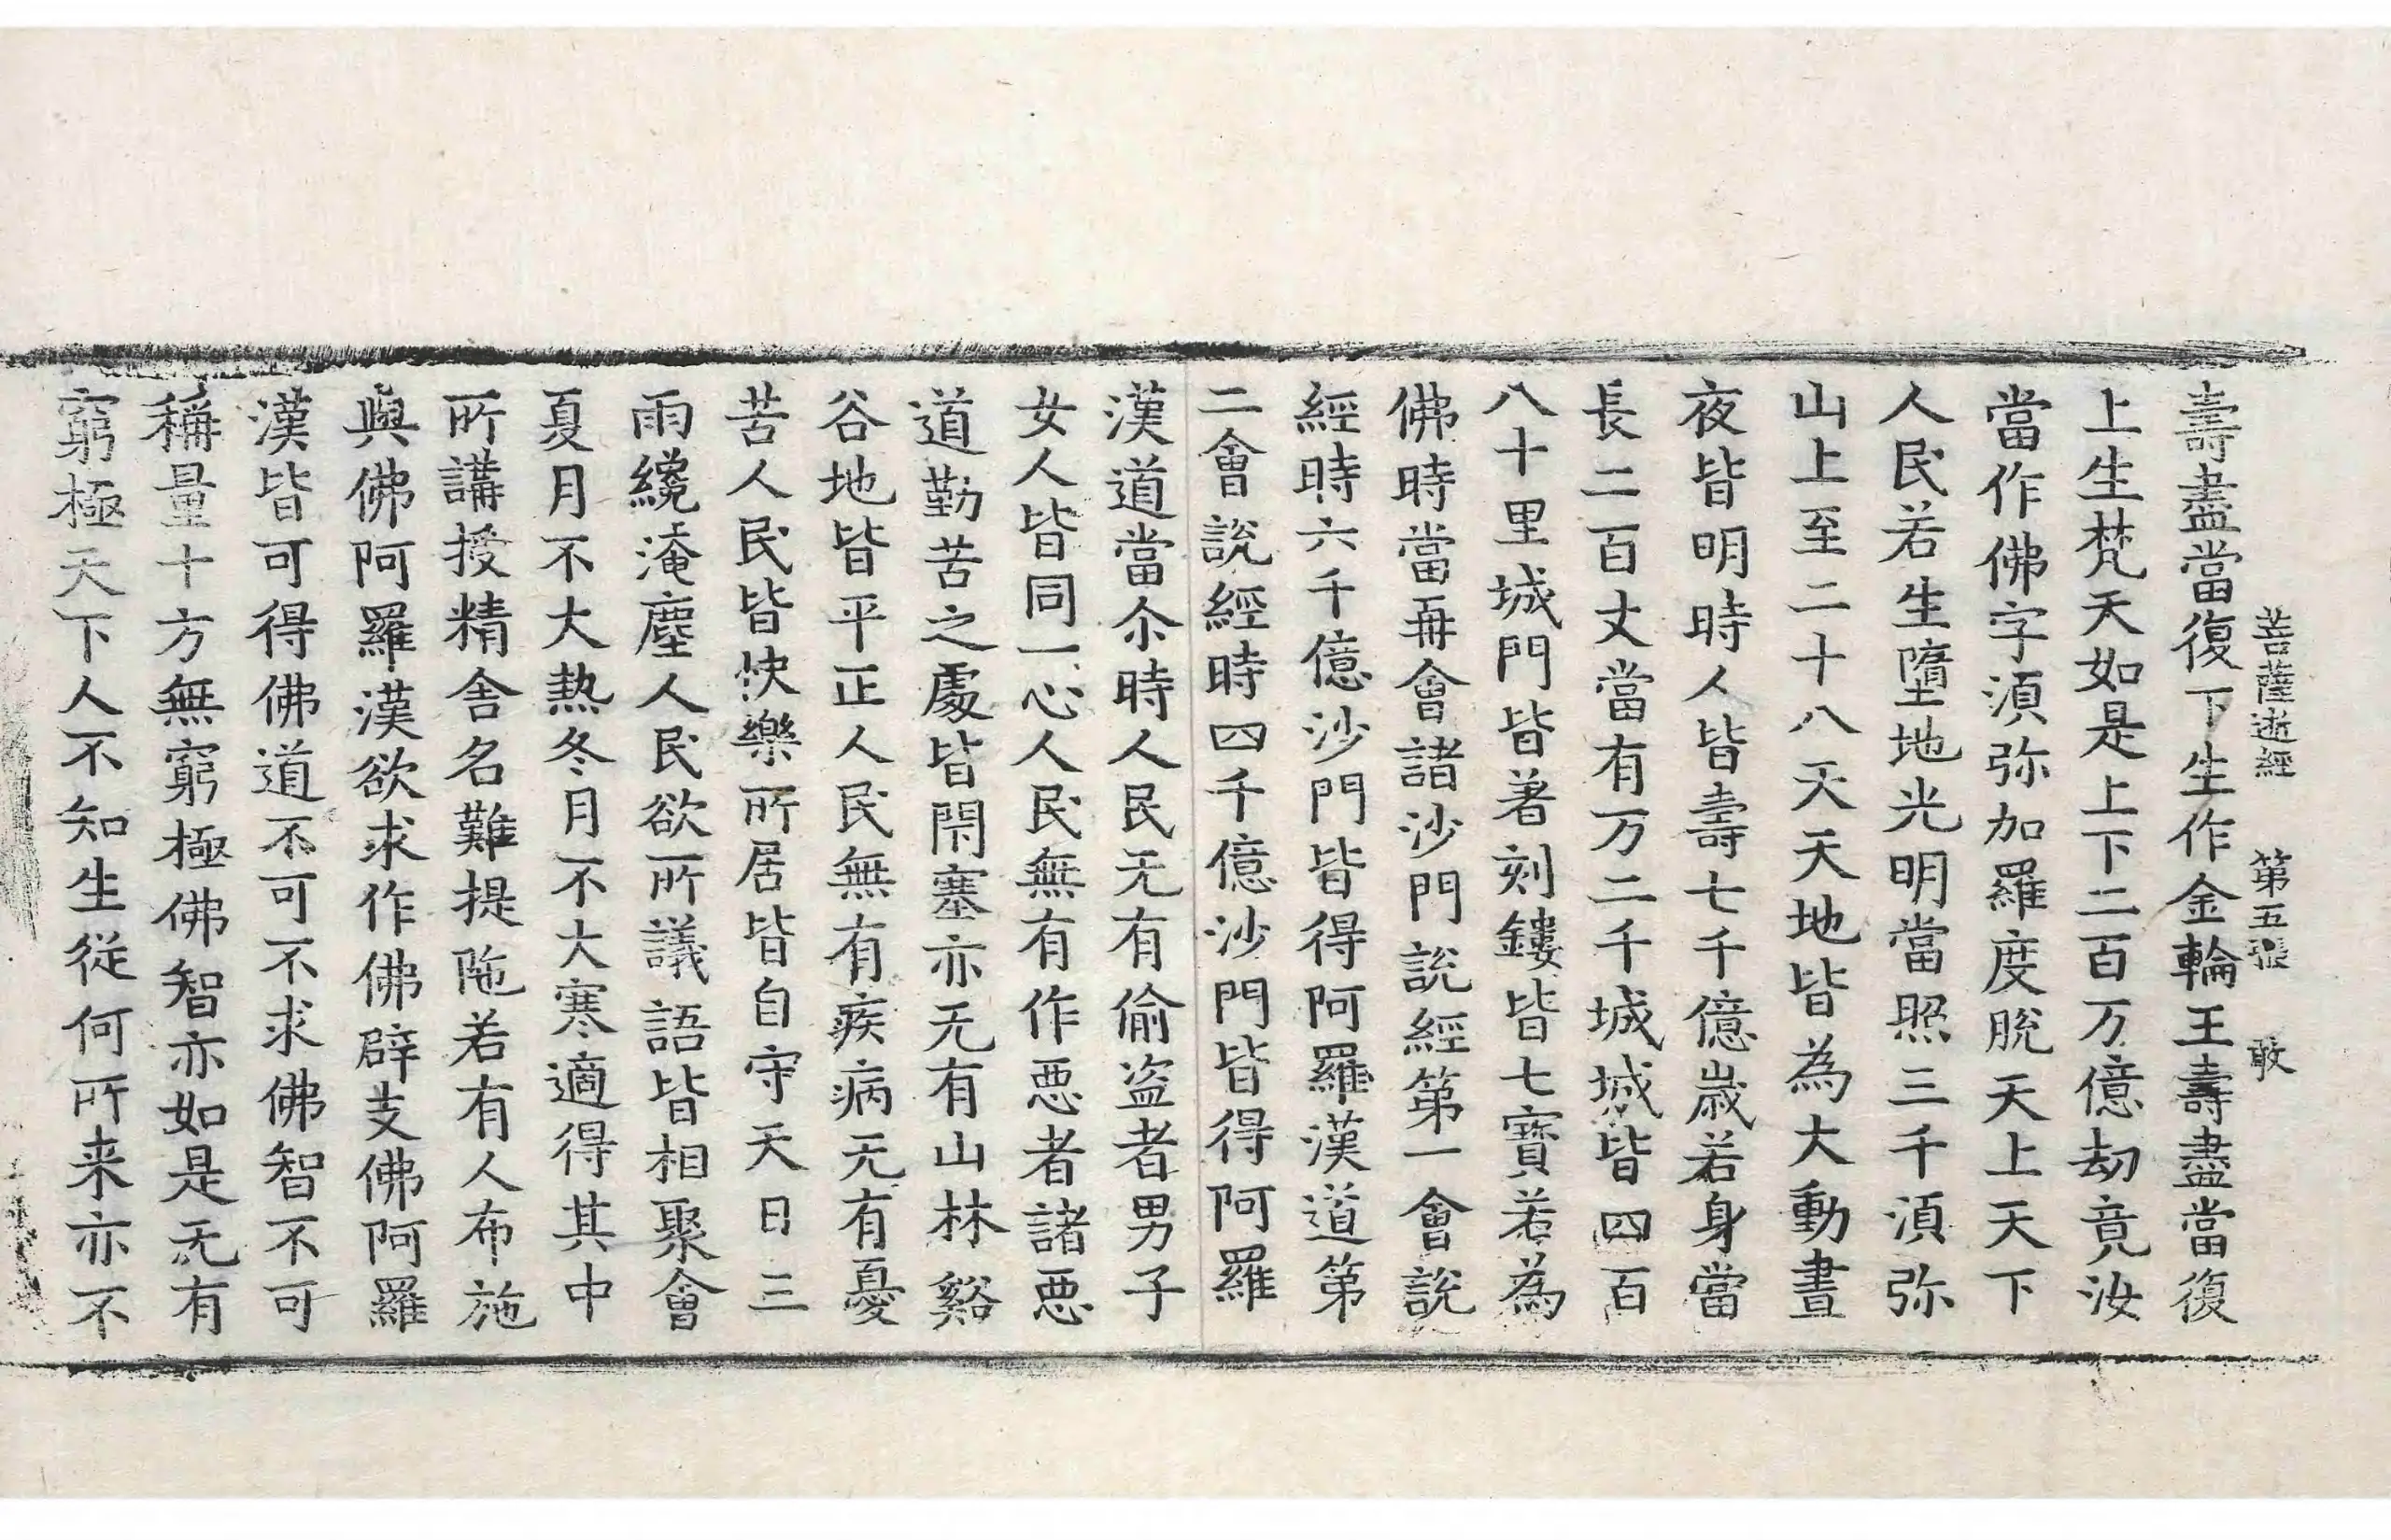 菩薩逝經 第五張 敢
壽盡當復下生作金輪王壽盡當復
上生梵天如是上下二百万億劫竟汝
當作佛字湏弥加羅度脫天上天下
人民若生墮地光明當照三千湏弥
山上至二十八天天地皆為大動晝
夜皆明明時人皆壽七千億歲若身當
長二百丈當有万二千城城皆四百
八十里城門皆著刻鏤皆七寶若為
佛時當再會諸沙門說經第一會說
經時六千億沙門皆得阿羅漢道第
二會說經時四千億沙門皆得阿羅
漢道當尒時人民无有偷盗者男子
女人皆同一心人民無有作惡者諸惡
道勤苦之處皆閇塞亦无有山林谿
谷地皆平正人民無有疾病无有憂
苦人民皆快樂所居皆自守天日三
雨纔淹塵人民欲所議語皆相聚會
夏月不大熱冬月不大寒適得其中
所講授精舍名難提陁若有人布施
與佛阿羅漢欲求作佛辟支佛阿羅
漢皆可得佛道不可不求佛智不可
稱量十方無窮極佛智亦如是无有
窮極天下人不知生從何所来亦不